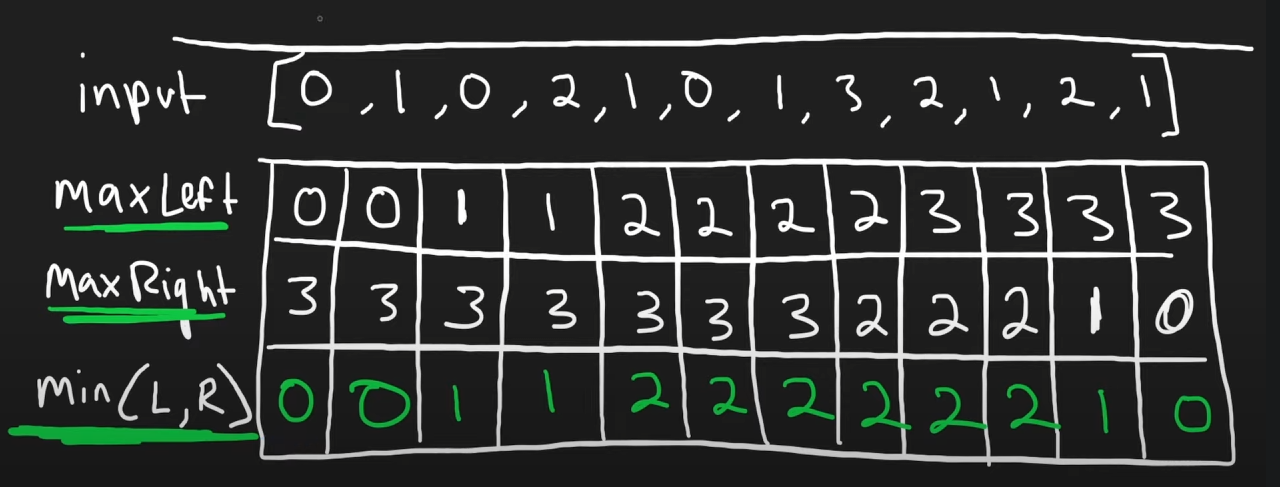 input [0, 1, 0, 2, 1, 0, 1, 3, 2, 1, 2, 1]
maxLeft 0 0 1 1 2 2 2 2 3 3 3 3
maxRight 3 3 3 3 3 3 3 2 2 2 1 0
min(L,R) 0 0 1 1 2 2 2 2 2 2 1 0